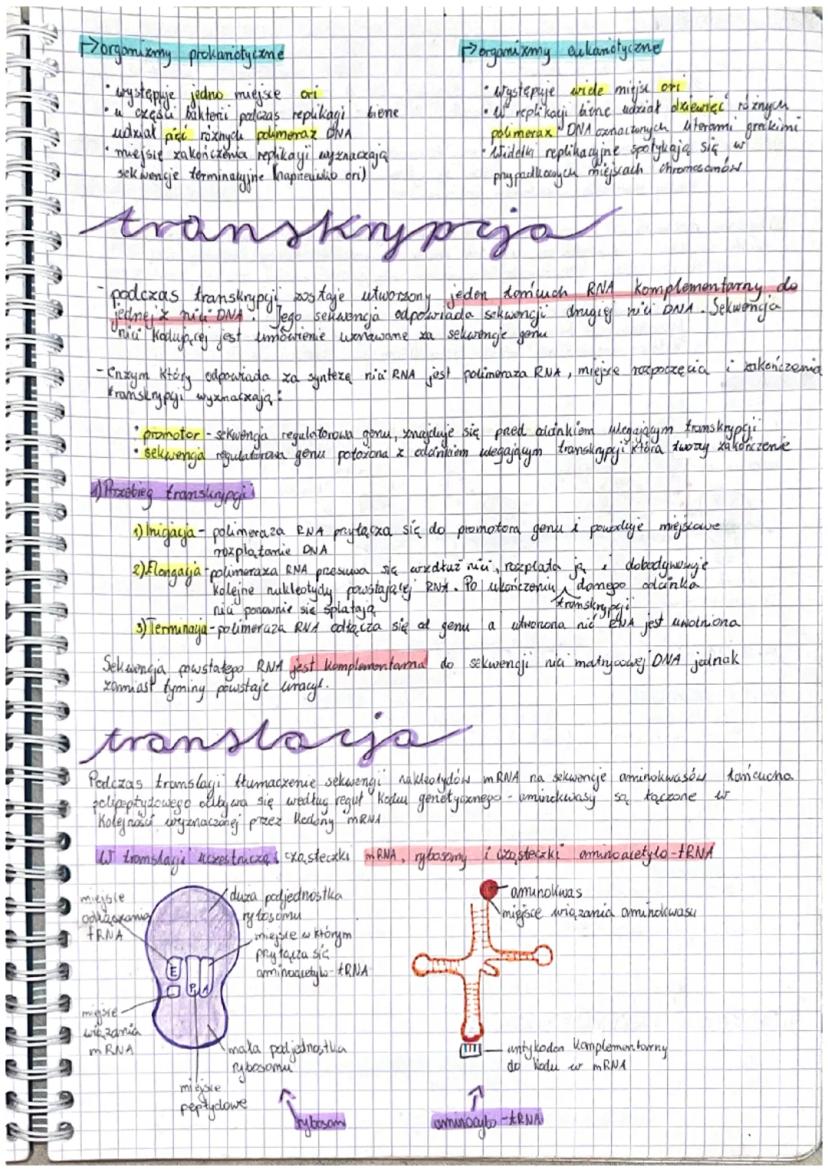 →organizmy prokariotyczne
• występuje jedno miejsce ori
• u części bakterii podczas replikacji biene
udział pięć różnych polimeraz DNA
• miejsce zakończenia replikacji wyznaczają
sekwencje terminacyjne (naprzeciwko ori)
→organizmy eukariotyczne
• występuje wiele miejsc ori
• W replikacji bierze udział dziewięć różnych
polimeraz DNA oznaczonych literami greckimi
• Widełki replikacyjne spotykają się w
przypadkowych miejscach chromosomów
transkrypcja
- podczas transkrypcji zostaje utworzony jeden łańcuch RNA komplementarny do
jednej z nici DNA. Jego sekwencja odpowiada sekwencji drugiej nici DNA. Sekwencja
nici kodującej jest umownie uznawane za sekwencje genu
- Enzym który odpowiada za syntezę nici RNA jest polimeraza RNA, miejsce rozpoczęcia i zakończenia
transkrypcji wyznaczają:
• promotor - sekwencja regulatorowa genu, znajduje się przed odcinkiem ulegającym transkrypcji
• sekwencja regulatorowa genu położona z odcinkiem ulegającym transkrypcji która tworzy zakończenie
1) Przebieg transkrypcji
1) Inicjacja - polimeraza RNA przyłącza się do promotora genu i powoduje miejscowe
rozplątanie DNA
2) Elongacja - polimeraza RNA przesuwa się wzdłuż nici, rozplata ją i dobudowuje
kolejne nukleotydy powstającej RNA. Po ukończeniu transkrypcji danego odcinka
nici ponownie się splatają
3) Terminacja - polimeraza RNA odłącza się od genu a utworzona nić RNA jest uwolniona
Sekwencja powstałego RNA jest komplementarna do sekwencji nici matrycowej DNA jednak
zamiast tyminy powstaje uracyl.
translacja
Podczas translacji tłumaczenie sekwencji nukleotydów mRNA na sekwencje aminokwasów łańcucha
polipeptydowego odbywa się według reguł kodu genetycznego - aminokwasy są łączone w
kolejności wyznaczonej przez kodony mRNA
W translacji uczestniczą: cząsteczki mRNA, rybosomy i cząsteczki aminoacetylo-tRNA
miejsce
odłączania
tRNA
duża podjednostka
rybosomu
miejsce w którym
przyłącza się
aminoacetylo-tRNA
E
P
A
miejsce
wiązania
mRNA
mała podjednostka
rybosomu
miejsce
peptydowe
rybosom
aminokwas
miejsce wiązania aminokwasu
antykodon komplementarny
do kodu w mRNA
aminoacylo-tRNA